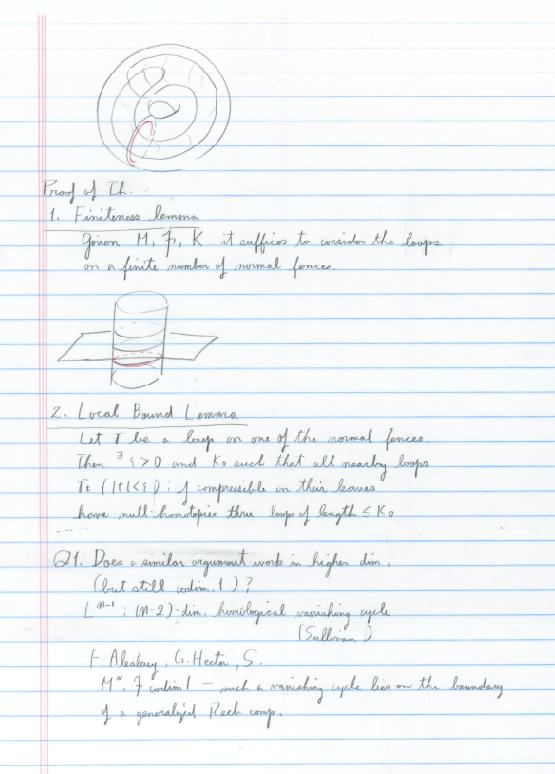 Proof of Th.
1. Finiteness lemma
Given M, F, K it suffices to consider the loops
on a finite number of normal fences.
2. Local Bound Lemma
Let γ be a loop on one of the normal fences.
Then ∃ ε>0 and K₀ such that all nearby loops
γt (|t|<ε) if compressible on their leaves
have null-homotopies thru loops of length ≤ K₀
Q1. Does a similar argument work in higher dim.
(but still codim. 1)?
Lⁿ⁻¹ ; (n-2)-dim. homological vanishing cycle
(Sullivan)
F. Alcalde, G. Hector, S.
Mⁿ, F codim 1 — such a vanishing cycle lies on the boundary
of a generalized Reeb comp.